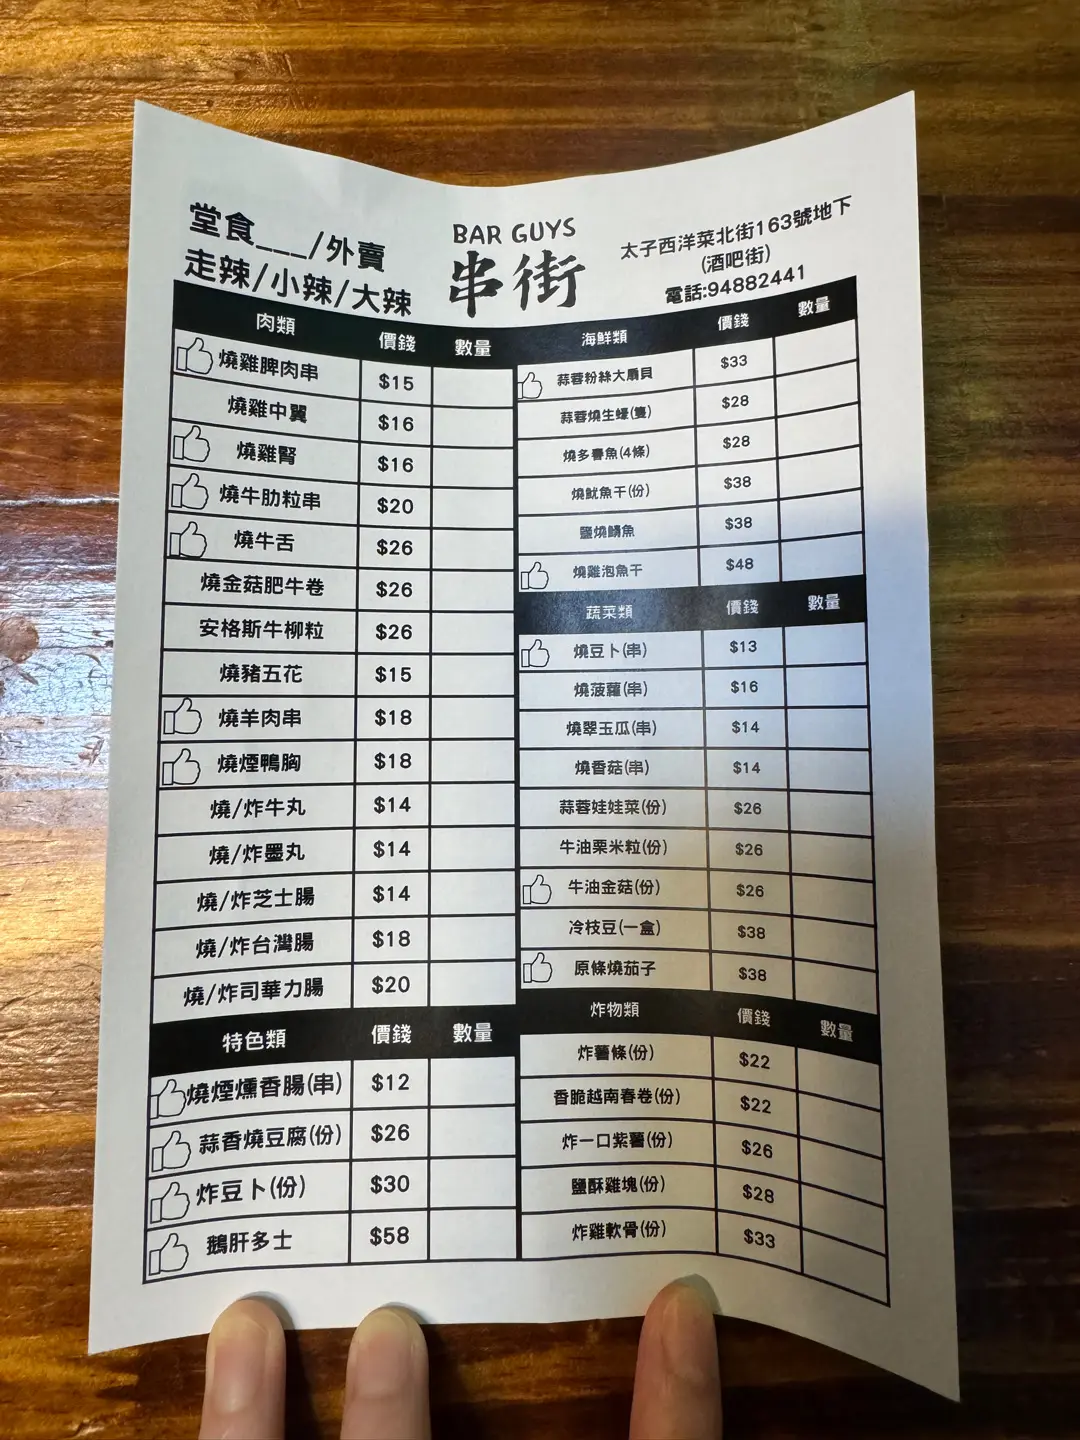 堂食___/外賣
走辣/小辣/大辣
BAR GUYS
串街
太子西洋菜北街163號地下
(酒吧街)
電話:94882441
肉類 價錢 數量
燒雞脾肉串 $15
燒雞中翼 $16
燒雞腎 $16
燒牛肋粒串 $20
燒牛舌 $26
燒金菇肥牛卷 $26
安格斯牛柳粒 $26
燒豬五花 $15
燒羊肉串 $18
燒煙鴨胸 $18
燒/炸牛丸 $14
燒/炸墨丸 $14
燒/炸芝士腸 $14
燒/炸台灣腸 $18
燒/炸司華力腸 $20
特色類 價錢 數量
燒煙燻香腸(串) $12
蒜香燒豆腐(份) $26
炸豆卜(份) $30
鵝肝多士 $58
海鮮類 價錢 數量
蒜蓉粉絲大扇貝 $33
蒜蓉燒生蠔(隻) $28
燒多春魚(4條) $28
燒魷魚干(份) $38
鹽燒鯖魚 $38
燒雞泡魚干 $48
蔬菜類 價錢 數量
燒豆卜(串) $13
燒菠蘿(串) $16
燒翠玉瓜(串) $14
燒香菇(串) $14
蒜蓉娃娃菜(份) $26
牛油栗米粒(份) $26
牛油金菇(份) $26
冷枝豆(一盒) $38
原條燒茄子 $38
炸物類 價錢 數量
炸薯條(份) $22
香脆越南春卷(份) $22
炸一口紫薯(份) $26
鹽酥雞塊(份) $28
炸雞軟骨(份) $33